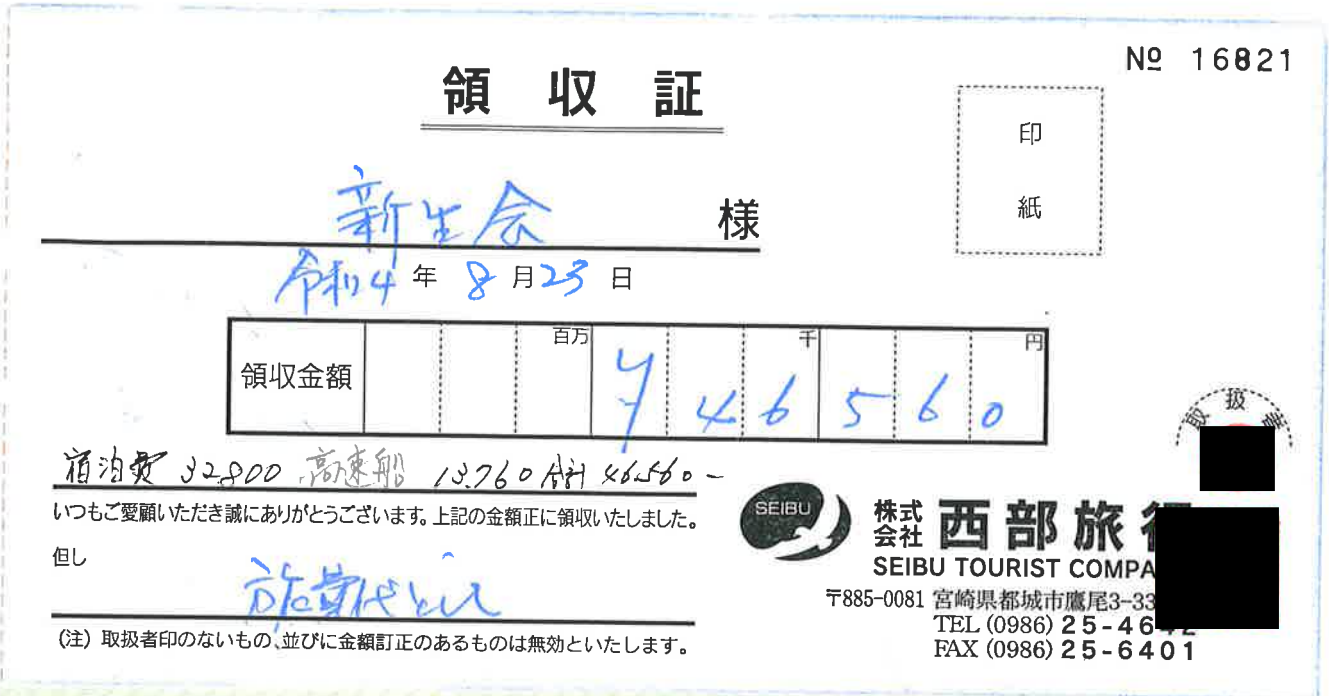 № 16821
領収証
印
紙
新生会 様
令和4年8月23日
領収金額 百万 千 円
¥46560
取扱者
宿泊費 32,800 高速船 13,760 合計 46,560-
いつもご愛顧いただき誠にありがとうございます。上記の金額正に領収いたしました。
但し
旅費代として
(注) 取扱者印のないもの、並びに金額訂正のあるものは無効といたします。
SEIBU
株式会社 西部旅行
SEIBU TOURIST COMPA
〒885-0081 宮崎県都城市鷹尾3-33
TEL (0986) 25-46
FAX (0986) 25-6401